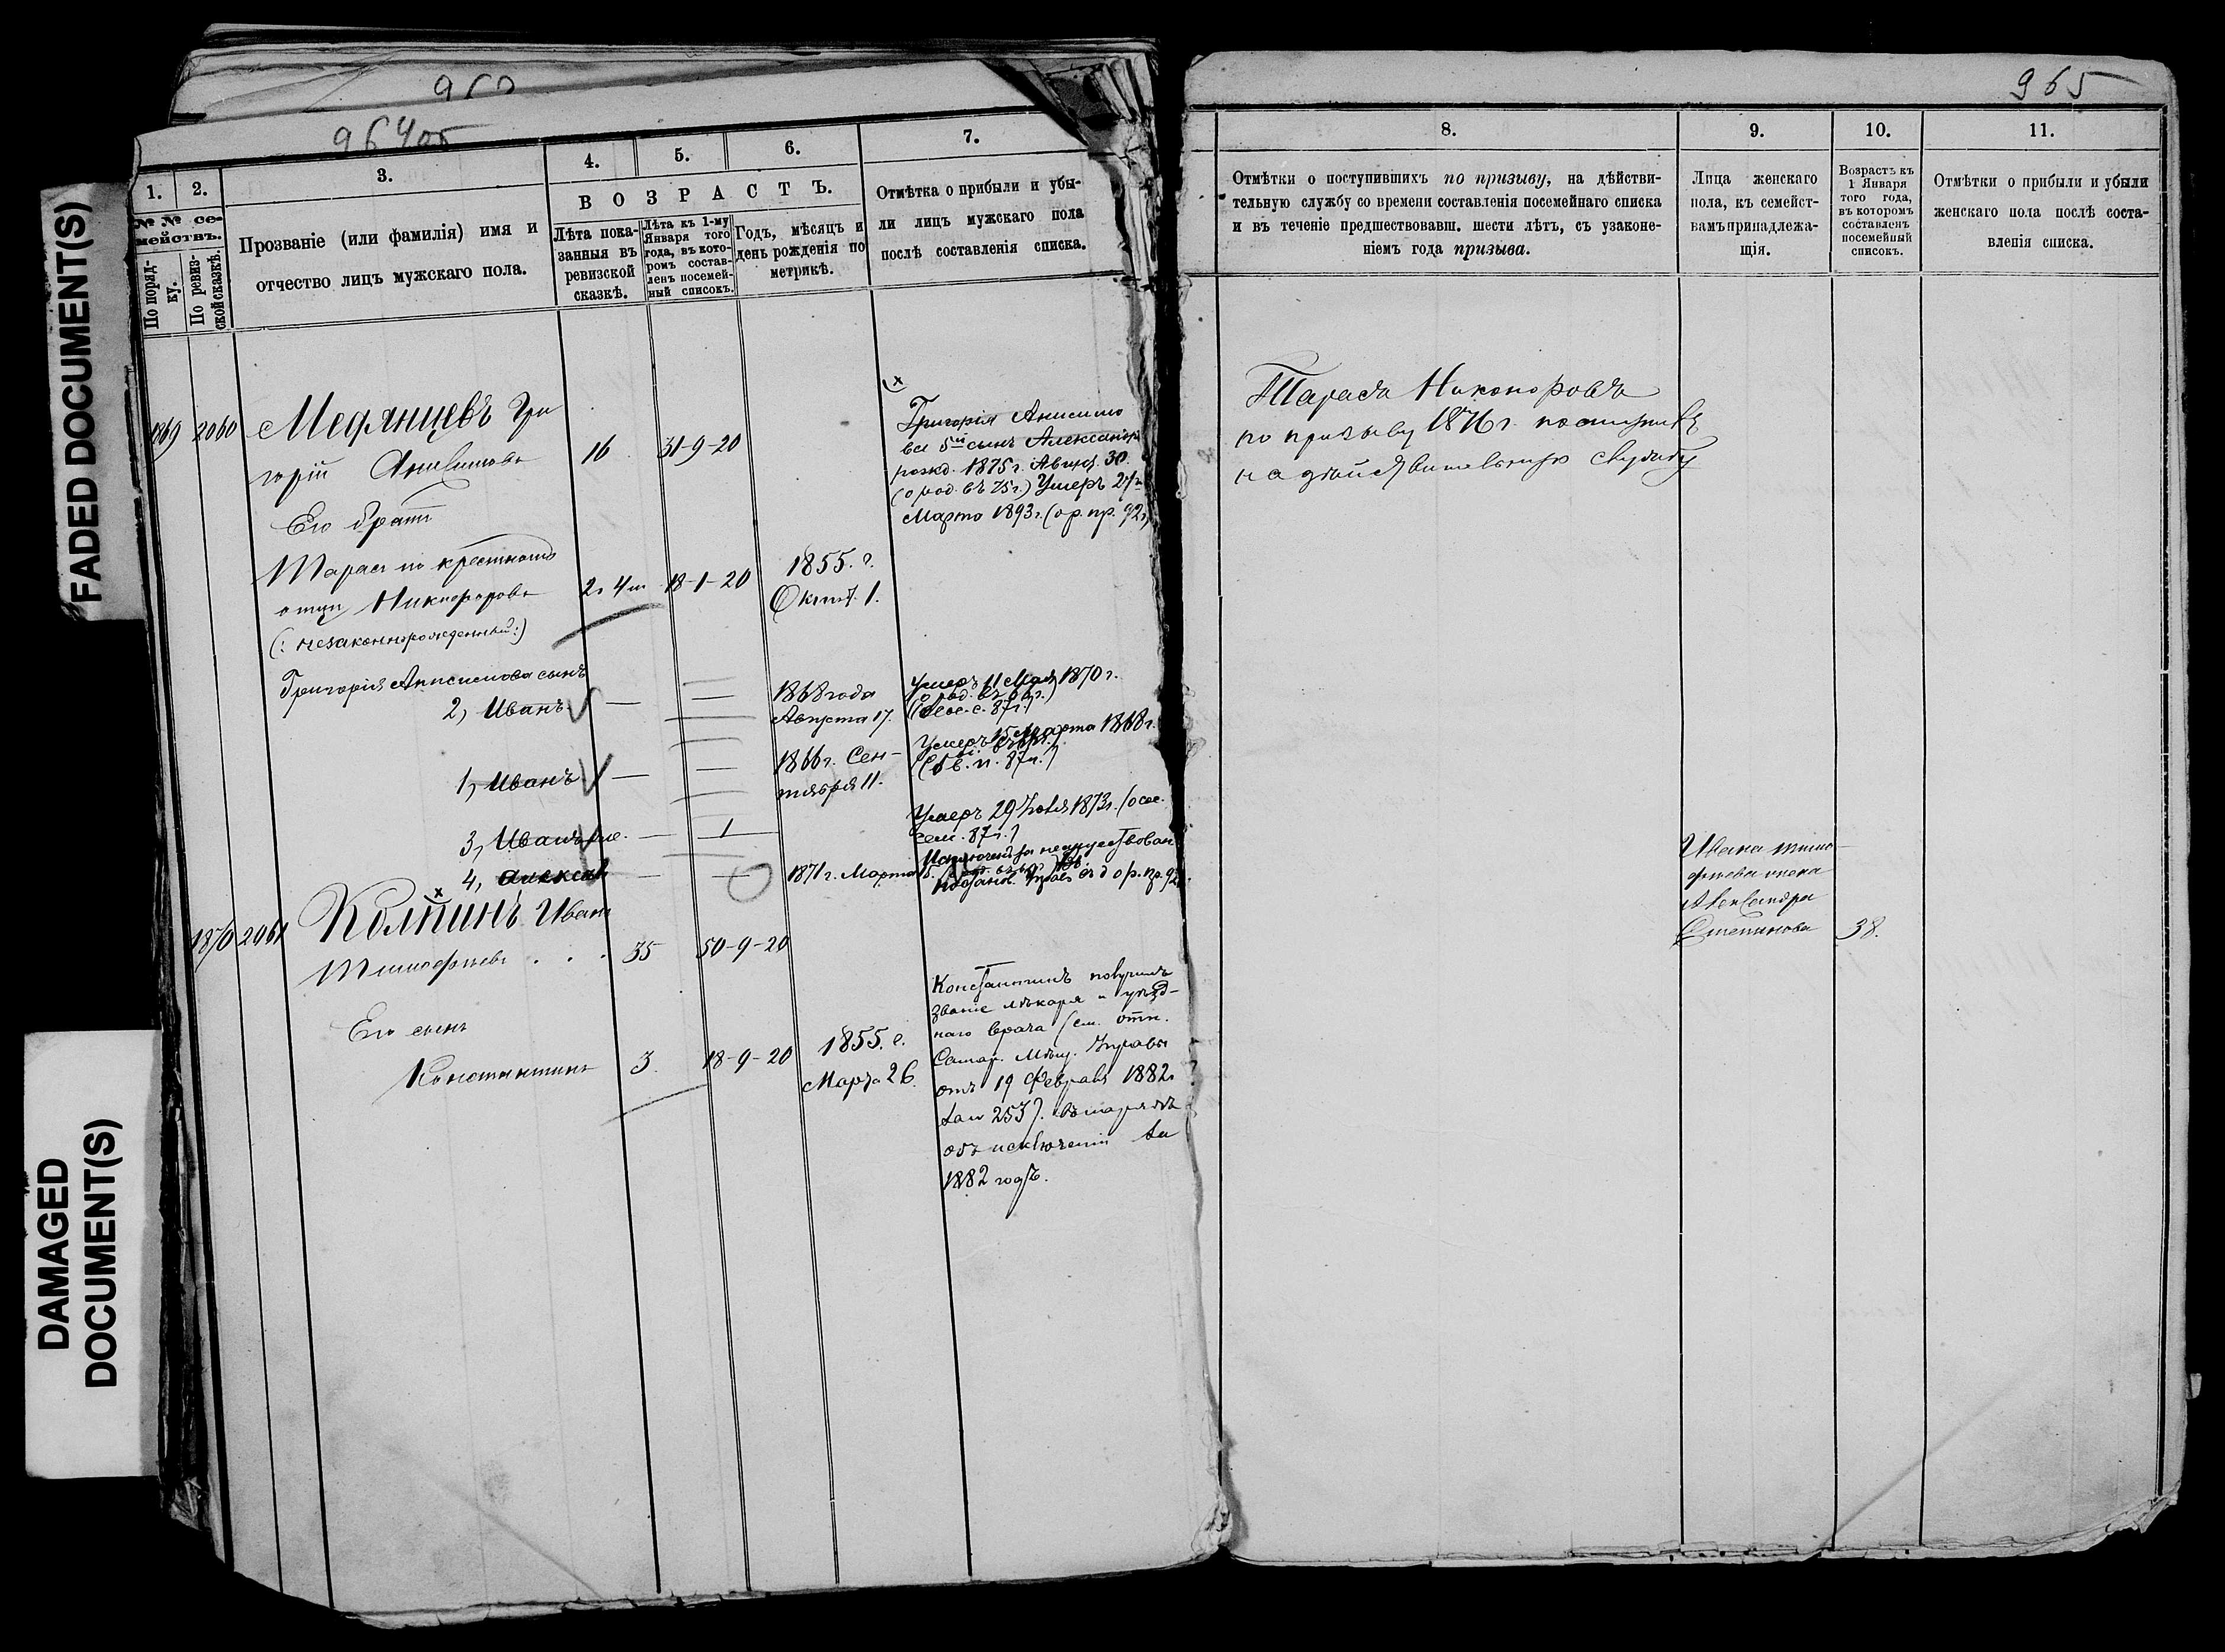 FADED DOCUMENT(S)
DAMAGED
DOCUMENT(S)
964 об
1.
2.
3.
4.
5.
6.
7.
№ № се-
мействъ.
По поряд-
ку.
По ревиз-
ской сказкѣ.
Прозваніе (или фамилія) имя и
отчество лицъ мужскаго пола.
ВОЗРАСТЪ.
Лѣта пока-
занныя въ
ревизской
сказкѣ.
Лѣта къ 1-му
Января того
года, въ кото-
ромъ состав-
ленъ посемей-
ный списокъ.
Годъ, мѣсяцъ и
день рожденія по
метрикѣ.
Отмѣтка о прибыли и убы-
ли лицъ мужскаго пола
послѣ составленія списка.
1869 2060 Медянцевъ Гри
горій Анисимовъ 16 31-9-20
Григорія Анисимо
ва 5й сынъ Александръ
рожд. 1875 г. Август. 30.
(о род. въ 75 г.) Умеръ 27
Марта 1893 г. (ор. пр. 92 г.)
Его братъ
Тарасъ по крестному
отцу Никифоровъ 2 4 м 18-1-20 1855. г.
Октяб. 1.
(: незаконнорожденный:)
Григорія Анисимова сынъ
2, Иванъ — 1868 года
Августа 17.
Умеръ 11 Мая 1870 г.
1, Иванъ — 1866 г. Сен-
тября 11.
Умеръ 15 Марта 1868 г.
3, Иванъ — 1
Умеръ 29 Іюля 1873 г.
сем. 87 г.)
4, Алексѣй — 1871 г. Марта
1870 2061 Колпинъ Иванъ
Тимофеевъ . . . 35 50-9-20
Его сынъ
Константинъ 3. 18-9-20 1855. г.
Марта 26.
Константинъ получилъ
званіе лѣкаря и уѣзд-
наго врача (см. отн.
Самар. Мѣщ. Управы
отъ 19 Февраля 1882 г
за № 253).
объ исключеніи за
1882 годъ.
965
8.
9.
10.
11.
Отмѣтки о поступившихъ по призыву, на дѣйстви-
тельную службу со времени составленія посемейнаго списка
и въ теченіе предшествовавш. шести лѣтъ, съ узаконе-
ніемъ года призыва.
Лица женскаго
пола, къ семейст-
вамъ принадлежа-
щія.
Возрастъ къ
1 Января
того года,
въ которомъ
составленъ
посемейный
списокъ.
Отмѣтки о прибыли и убыли
женскаго пола послѣ соста-
вленія списка.
Тарасъ Никоноровъ
по призыву 1876 г. поступилъ
на дѣйствительную службу
Ивана Тимо-
феева жена
Александра
Степанова 38.